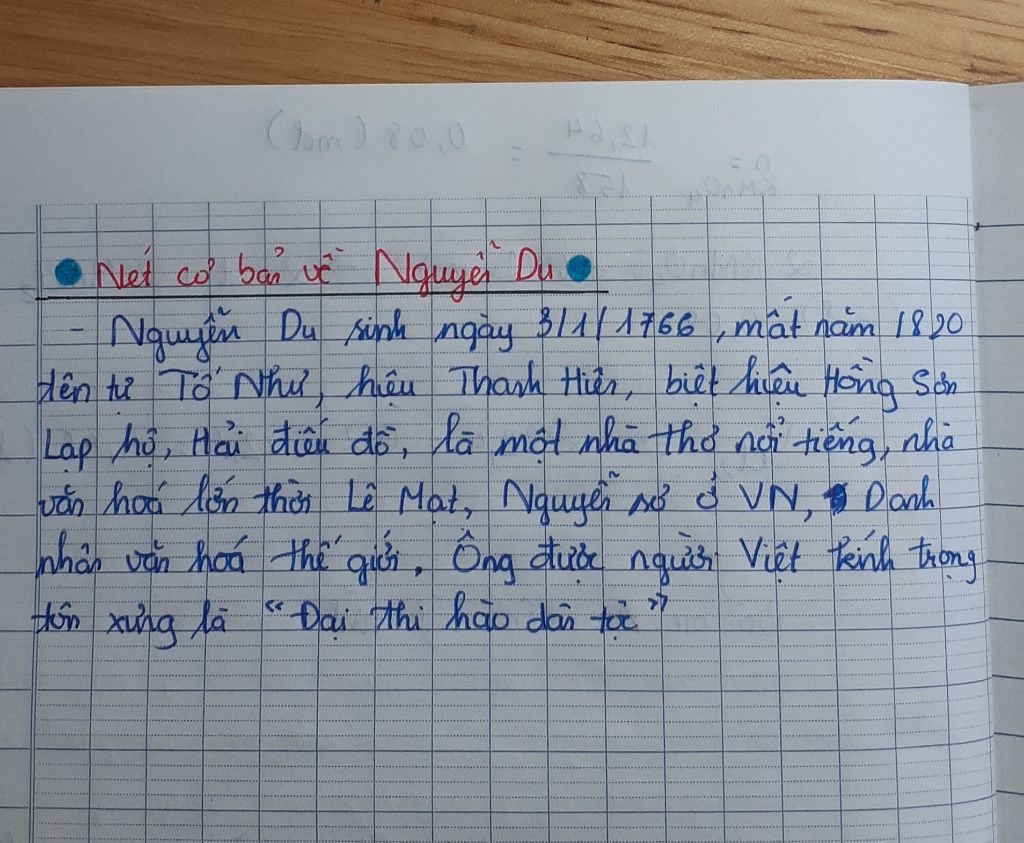 (lom) 80,0 = 12,64 / 158 n KMnO4 =
Nét cơ bản về Nguyễn Du
- Nguyễn Du sinh ngày 3/1/1766, mất năm 1820
tên tự Tố Như, hiệu Thanh Hiên, biệt hiệu Hồng Sơn
Lạp hộ, Hải điếu đồ, là một nhà thơ nổi tiếng, nhà
văn hoá lớn thời Lê Mạt, Nguyễn sơ ở VN, Danh
nhân văn hoá thế giới. Ông được người Việt kính trọng
tôn xưng là “Đại thi hào dân tộc”